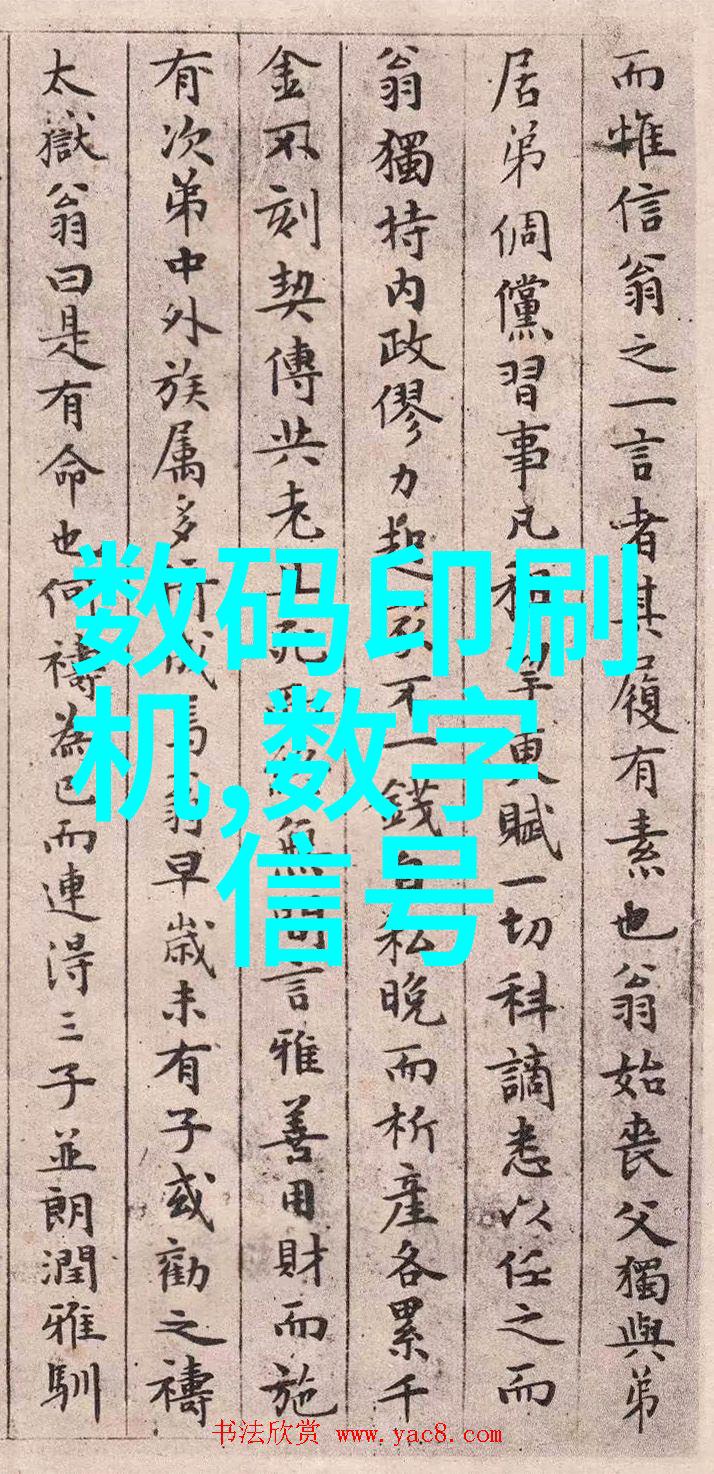 而惟信翁之一言者其履有素也翁始喪父獨與弟
居弟倜儻習事凡和更賦一切科謫悉以任之而
翁獨持内政僇力起不一錢私晚而析産各累千
金不刻契傳共老無間言雅善用財而施
有次弟中外族属多所成馬翁早歲未有子或勸之禱
太嶽翁曰是有命也何禱為已而連得三子並朗潤雅馴
数码印刷
机,数字
信号
书法欣赏 www.yac8.com